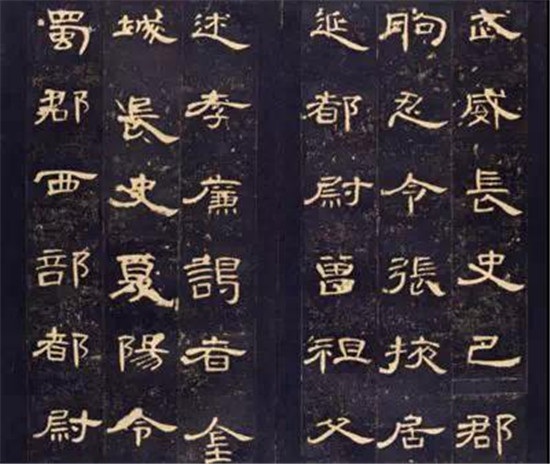 武威長史巴郡
朐忍令張掖居
延都尉曾祖父
述孝廉謁者金
城長史夏陽令
蜀郡西部都尉